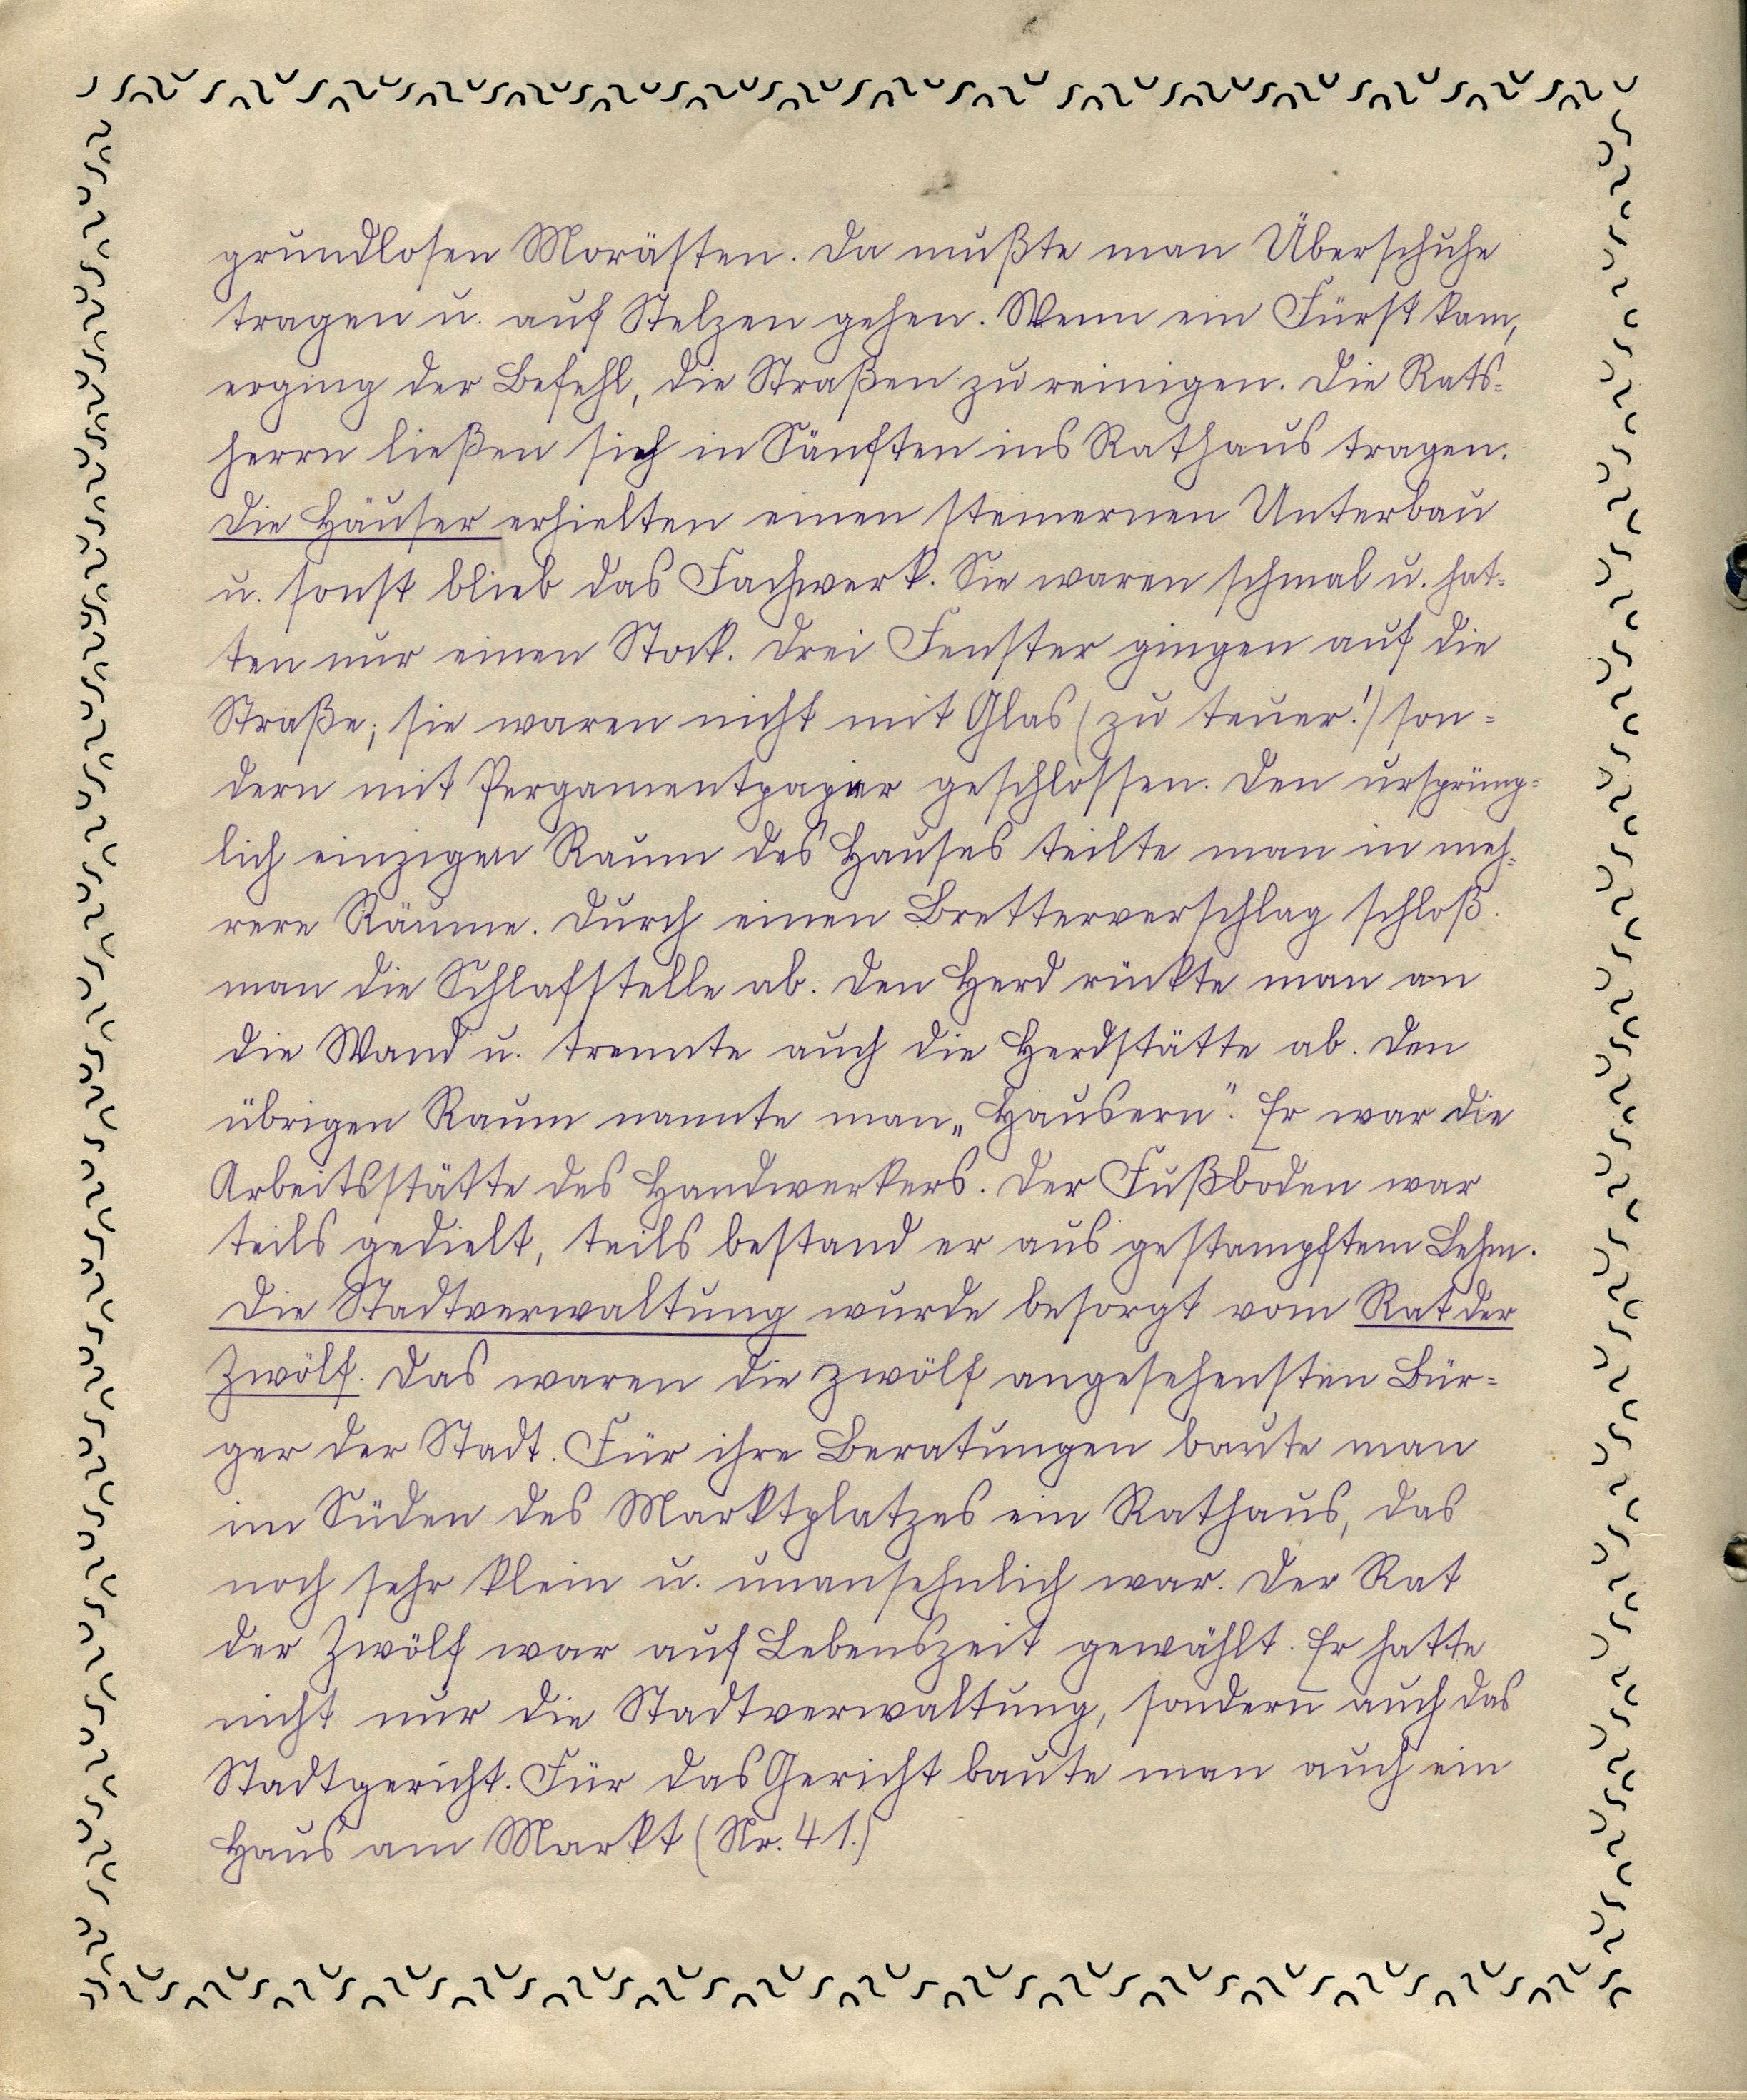 grundlosen Morästen. Da mußte man Überschuhe
tragen u. auf Stelzen gehen. Wenn ein Fürst kam,
erging der Befehl, die Straßen zu reinigen. Die Rats-
herrn ließen sich in Sänften ins Rathaus tragen.
Die Häuser erhielten einen steinernen Unterbau
u. sonst blieb das Fachwerk. Sie waren schmal u. hat-
ten nur einen Stock. Drei Fenster gingen auf die
Straße; sie waren nicht mit Glas (zu teuer!) son-
dern mit Pergamentpapier geschlossen. Den ursprüng-
lich einzigen Raum des Hauses teilte man in meh-
rere Räume. Durch einen Bretterverschlag schloß
man die Schlafstelle ab. Den Herd rückte man an
die Wand u. trennte auch die Herdstätte ab. Den
übrigen Raum nannte man „Hausern". Er war die
Arbeitsstätte des Handwerkers. Der Fußboden war
teils gedielt, teils bestand er aus gestampftem Lehm.
Die Stadtverwaltung wurde besorgt vom Rat der
Zwölf. Das waren die zwölf angesehensten Bür-
ger der Stadt. Für ihre Beratungen baute man
im Süden des Marktplatzes ein Rathaus, das
noch sehr klein u. unansehnlich war. Der Rat
der Zwölf war auf Lebenszeit gewählt. Er hatte
nicht nur die Stadtverwaltung, sondern auch das
Stadtgericht. Für das Gericht baute man auch ein
Haus am Markt (Nr. 41.)